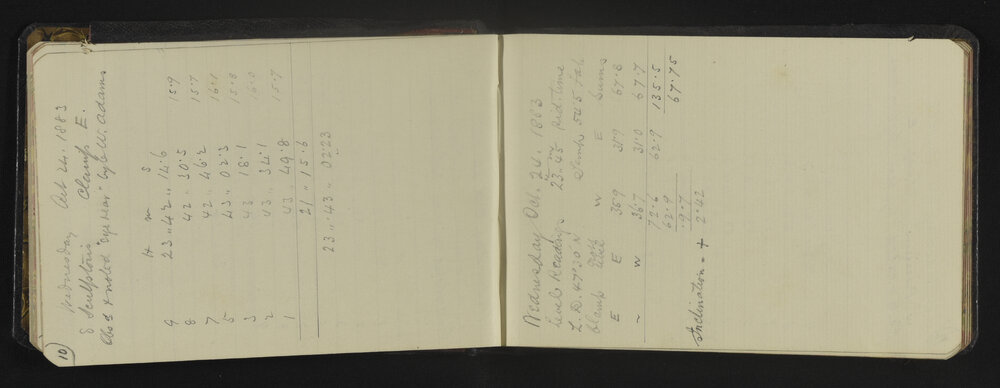 10
Wednesday Oct 24. 1883
δ Sculptoris Clamp E.
Obsd & noted "Eye & ear" by C.W. Adams
H m s
9 23 .. 42 .. 14.6 15.9
8 42 .. 30.5 15.7
7 42 .. 46.2 16.1
5 43 .. 02.3 15.8
3 43 .. 18.1 16.0
2 43 .. 34.1 15.7
1 43 .. 49.8
21 .. 15.6
23 .. 43 .. 02.23
Wednesday Oct. 24. 1883
Level Readings 23 h 45 m Sid. time
Z.D. 47°30' N Temp 54.5 Fah.
Clamp W E Sums
E E 36.9 31.9 67.8
~ W 36.7 31.0 67.7
72.6 62.9 135.5
62.9 67.75
9.7
Inclination = + 2.42